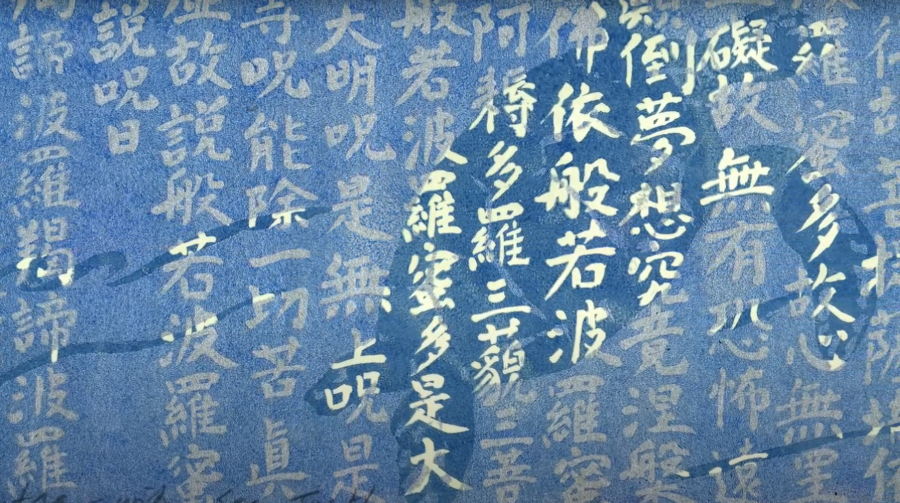 得故菩提薩埵依
羅蜜多故心無罣
礙故無有恐怖遠
倒夢想究竟涅槃
佛依般若波羅蜜
阿耨多羅三藐三菩
般若波羅蜜多是大
大明呪是無上呪是
等呪能除一切苦眞
虛故説般若波羅蜜
説呪曰
諦波羅揭諦波羅